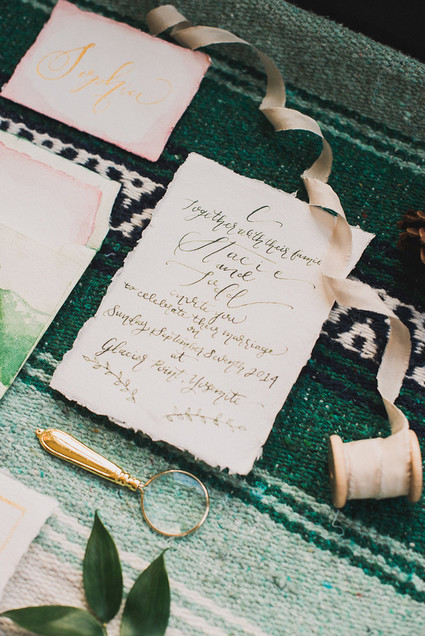 Sophia
Together with their familie
Stacie
and
Todd
invite you
to celebrate their marriage
on
Sunday, September Seventh 2014
at
Glacier Point, Yosemite